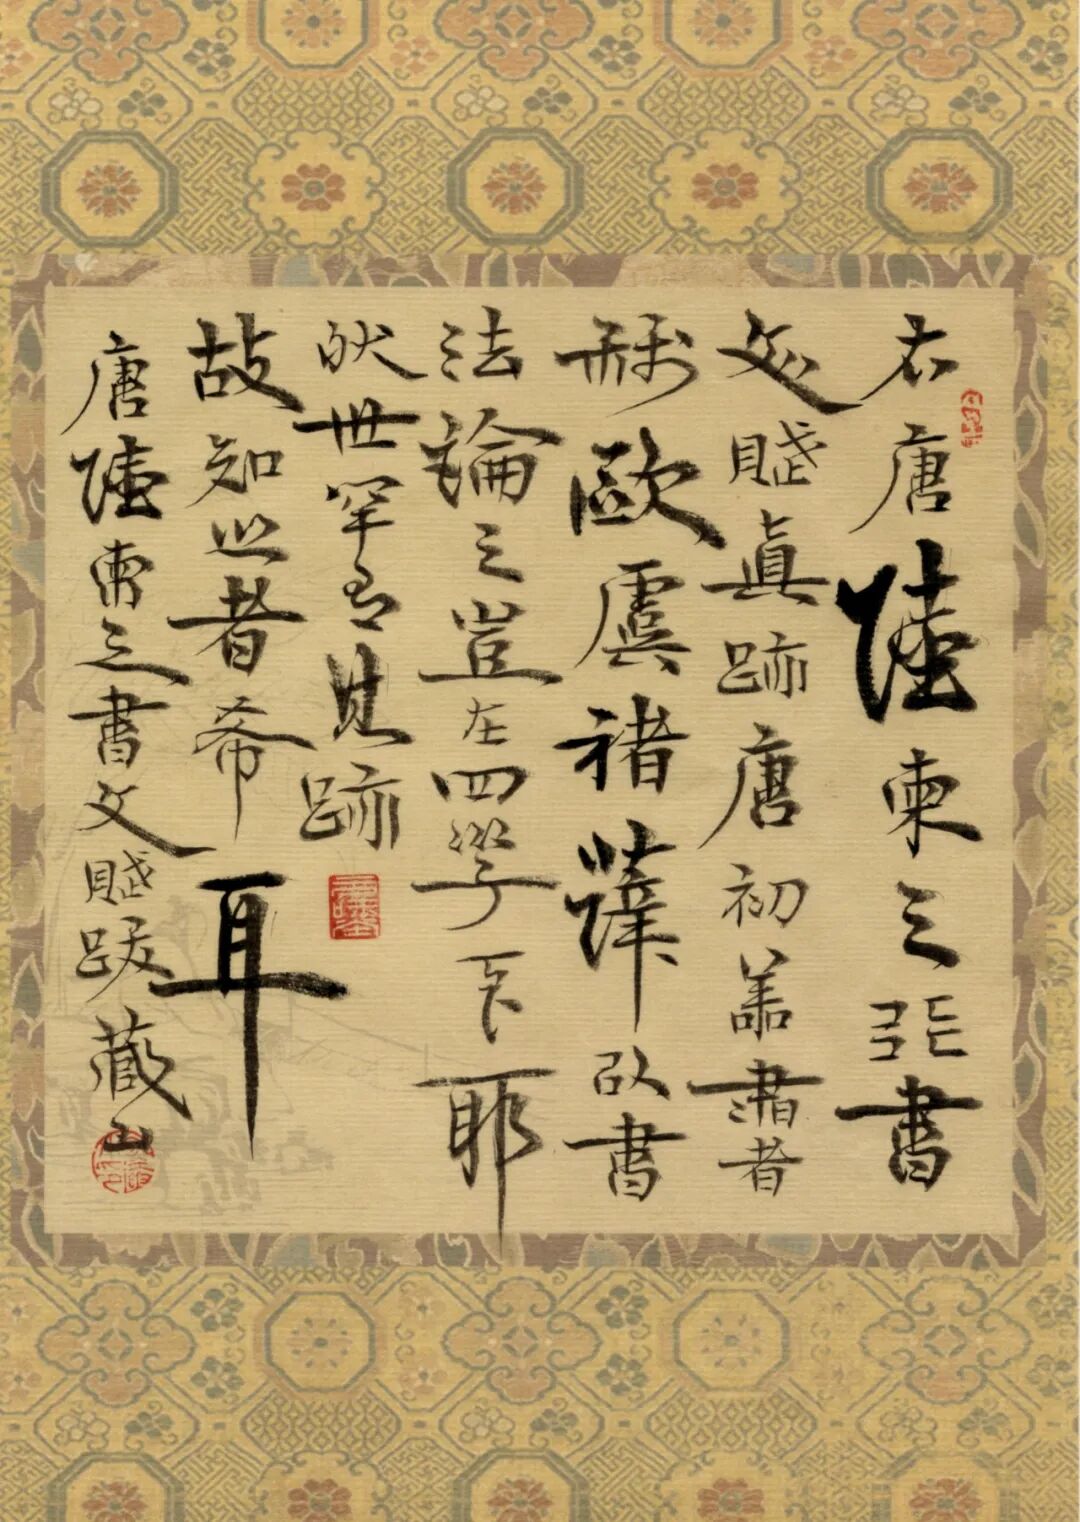 右唐陸柬之行書
文賦真跡唐初善書者
稱歐虞褚薛以書
法論之豈在四子下耶
然世罕有其跡
故知之者希耳
唐陸柬之書文賦跋藏山